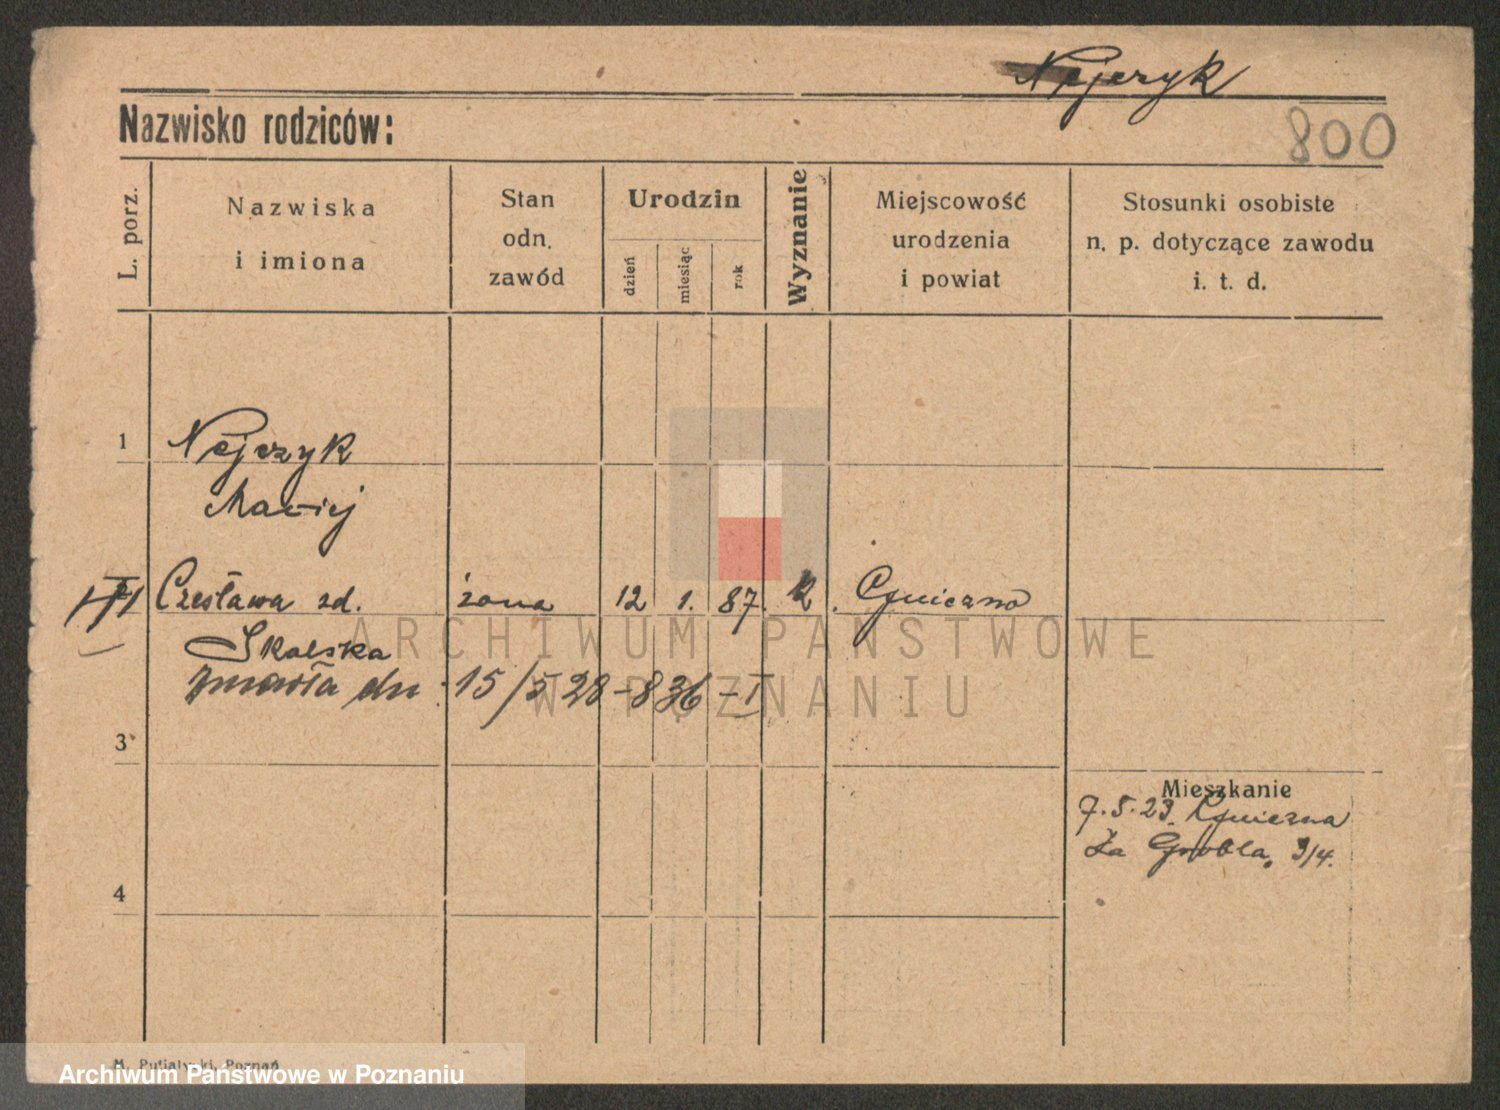 Nejczyk
Nazwisko rodziców:
800
L. porz.
Nazwiska
i imiona
Stan
odn.
zawód
Urodzin
dzień
miesiąc
rok
Wyznanie
Miejscowość
urodzenia
i powiat
Stosunki osobiste
n. p. dotyczące zawodu
i. t. d.
1 Nejczyk
Maciej
Czesława zd. żona 12 1. 87. k. Gniezno
Skalska
zmarła dn. 15/5 28 - 836 - I
3
Mieszkanie
7.5.23. Gniezna
Za Grobla, 3/4.
4
ARCHIWUM PAŃSTWOWE
W POZNANIU
Poznań
Archiwum Państwowe w Poznaniu